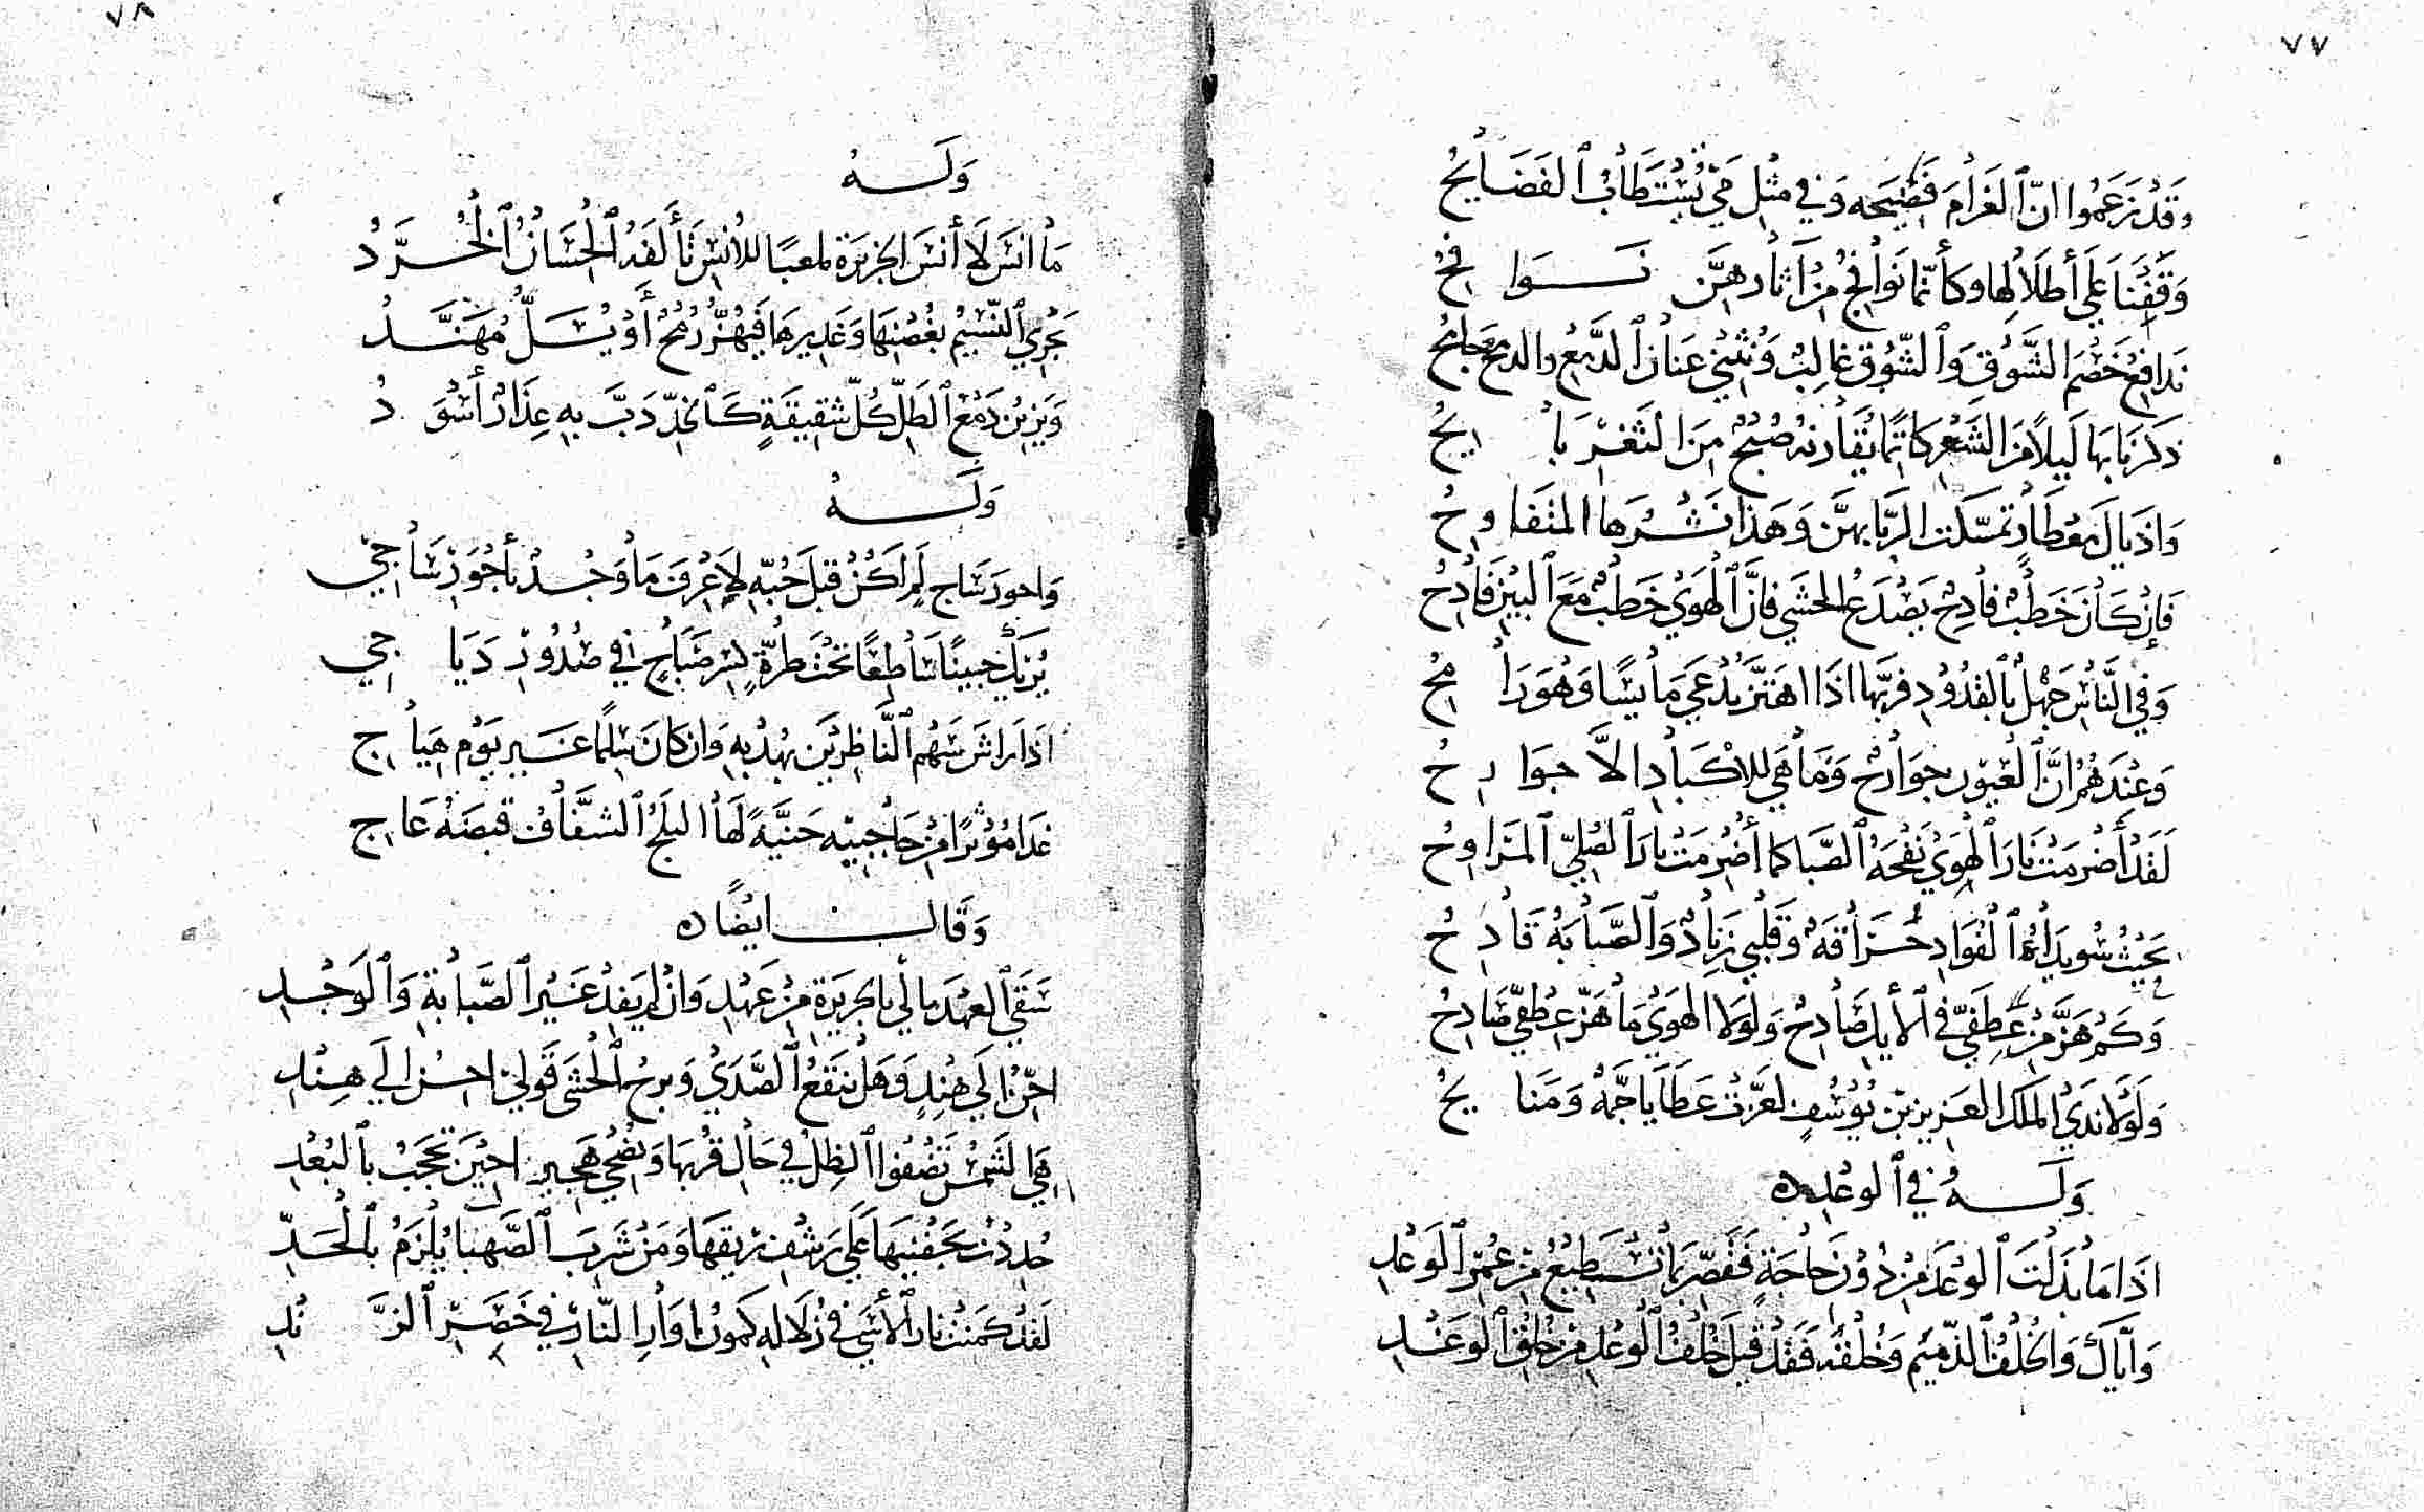 ٧٧
وَقَدْ زَعَمُوا انّ الغَرَامَ فَضِيْحه وَفي مثْلِ مَيٍّ تُسْتَطَابُ الفَضَايحُ
وَقَفْنَا عَلَي أطلَالِهَا وكَأنّمَا نَوافِحُ مِنْ آثارهِنَّ نَوافحُ
نُدافِعُ خَصْمَ الشَّوْقِ وَالشَّوْق غالِبٌ وَنَثْنِي عنَانَ الدَّمْعِ والدمعُ جَامحُ
ذكرنَا بهَا لَيلاً منَ الشَّعْر كاتمًا يُقَارنهُ صُبْحٌ مِنَ الثَغْر بايحُ
وَاذيالَ مِعْطَارٍ تمسّكتِ الرّبَا بهنَّ وَهَذا نَشْرهَا المتفاوحُ
فَإنْ كَانَ خَطْبٌ فادِحٌ يَصْدَعُ الحشَي فإنَّ الْهَوَي خَطبٌ مَعَ البَيْنِ فَادِحُ
وَفي النَّاسِ جَهْلٌ بالقدُودِ فربّما اذَا اهتَزَّ يُدْعَي مَايسًا وَهُوَ رَامحُ
وَعِنْدَهُمُ انَّ العُيُونَ جَوَارِحٌ وَمَا هَي للاكْبَادِ الاَّ جوَارحُ
لَقدْ أضْرمَتْ نَارَ الهَوَي نَفْحَةُ الصّبا كما أُضْرمَتْ نارَ الصُلِيّ المرَاوحُ
بحَيْثُ سُوَيداءُ الفُوَادِ حُرَاقَهٌ وَقَلْبي زِنَادٌ وَالصَّبابَةُ قَادحُ
وَكَمْ هَزَّ مِنْ عِطفيَّ في الأيك صَادِحٌ وَلوْلا الهوَيُ مَا هَزّ عِطْفيَّ صَادِحُ
وَلَوْلا نَدَيُ الملك العَزيز بْن يُوسُفٍ لعَزّتْ عَطَايَا جَمَّةٌ وَمَنَايحُ
وَلَهُ في الوعْدِ
اذَا مَا بَذَلْتَ الوعْدَ مِنْ دُوْنِ حَاجَةٍ فَقصّرْ بمَا تَسْتَطِيْعُ مِنْ عُمْرِ الوَعْدِ
وَايّاكَ وَالخُلْفَ الذّميْمَ وَخُلْقَهُ فَقَدْ قيلَ خُلْفُ الوَعْدِ مِنْ خُلُقِ الوَغْدِ
٧٨
وَلَهُ
مَا انسَ لاَ أنسَ الجزيرَة ملعبًا للانْسِ تَأْلَفهُ الحِسَانُ الخُرَّدُ
يَجْرِي النّسِيْمُ بغُصْنِهَا وَغَدِيرهَا فَيُهَزُّ رُمْحٌ أَوْ يُسَلُّ مُهَنَّدُ
وَيزِيْنُ دَمْعُ الطلِّ كُلّ شقِيقَةٍ كَالخدِّ دَبَّ بهِ عِذارٌ أسْوَدُ
وَلَهُ
وَاحورَ سَاجٍ لم اكنْ قبلَ حُبّهِ لِاَعْرفَ مَا وَجْدٌ بأَحْوَرَ سَاجي
يُرِيكَ جَبينًا سَاطِعًا تحْتَ طُرَّةٍ بسرّ صَبَاحٍ في صُدُورِ دَيَاجي
اذَا رَاشَ سَهْمَ النَّاظِريْن بهُدْبهِ وَان كانَ سِلمًا غَير يوْم هَيَاجِ
غدَا مُوْترًا مِنْ حَاجِبيْه حَنيَّةً لَهَا البلَجُ الشفَّافُ قبضَهْ عَاجِ
وَقَالَ ايضًا
سَقَي العهْدَ مالي بالجزيرَةِ مِنْ عَهْدِ وَانْ لم يَفِدْ غَيْرَ الصَّبابةِ وَالوَجْدِ
احِنّ الَي هِنْدٍ وَهَلْ يَنقَعُ الصّدَي وَبرحُ الحَشَي قَولي احنّ الَي هِنْدِ
هِيَ الشّمْسُ تَضْفُوا الظلّ في حَال قرْبهَا وَتُضْحِي هَجِيرًا حِيْنَ تحْجَبُ بالبُعْدِ
حُددْتُ بجَفْنيهَا عَلَي رَشْفِ ريْقهَا وَمَنْ شَربَ الصَّهبَا يُلزَمُ بالْحَدِّ
لَقدْ كمنَتْ نارُ الأسَي في زُلالِهِ كَمونَ اوَارِ النّارِ في خَضِرِ الزَّنْدِ